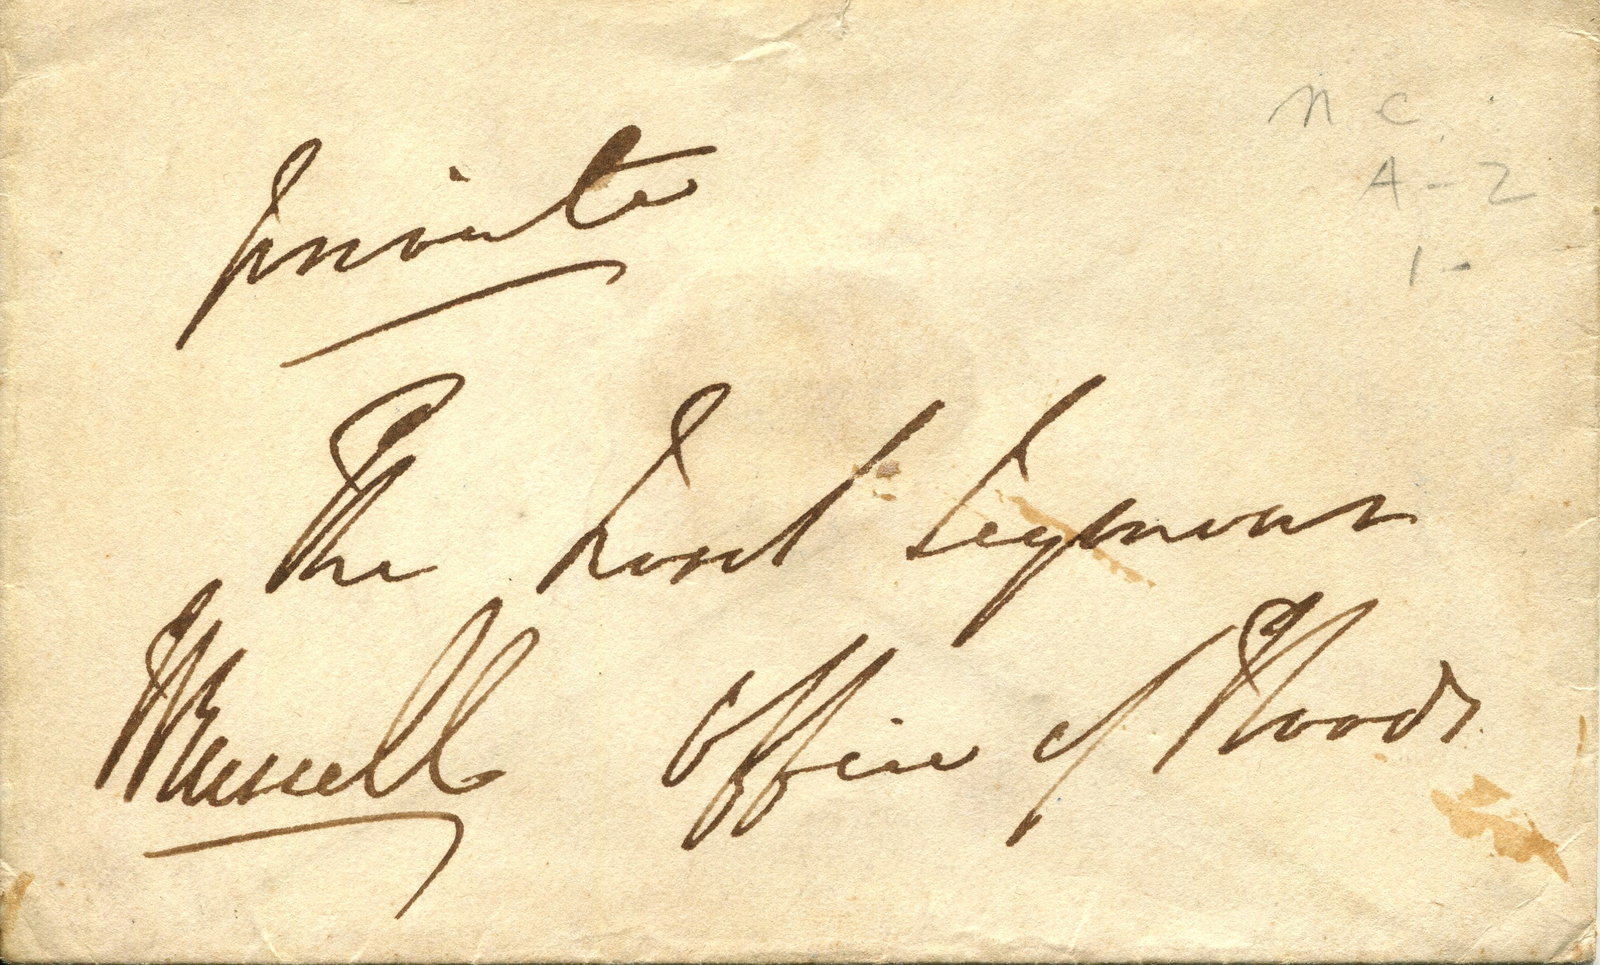 N. C.
A-2
1-
Private
The Lord Seymour
Office of Woods
JRussell